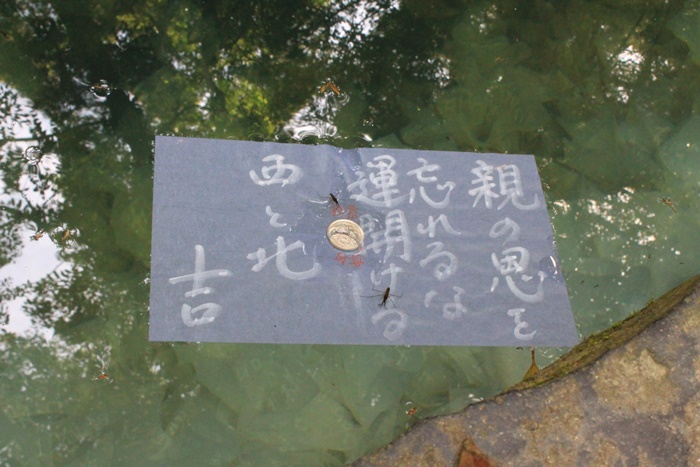 親の恩を
忘れるな
運開ける
西と北
吉